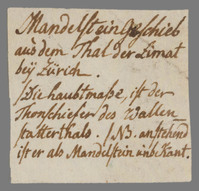 Mandelstein Geschieb
aus dem Thal der Limat
beÿ Zürich.
/Die hauptmaße, ist der
Thonschiefer des Wallen-
statterthals. /NB. anstehend
ist er als Mandelstein unbekant.